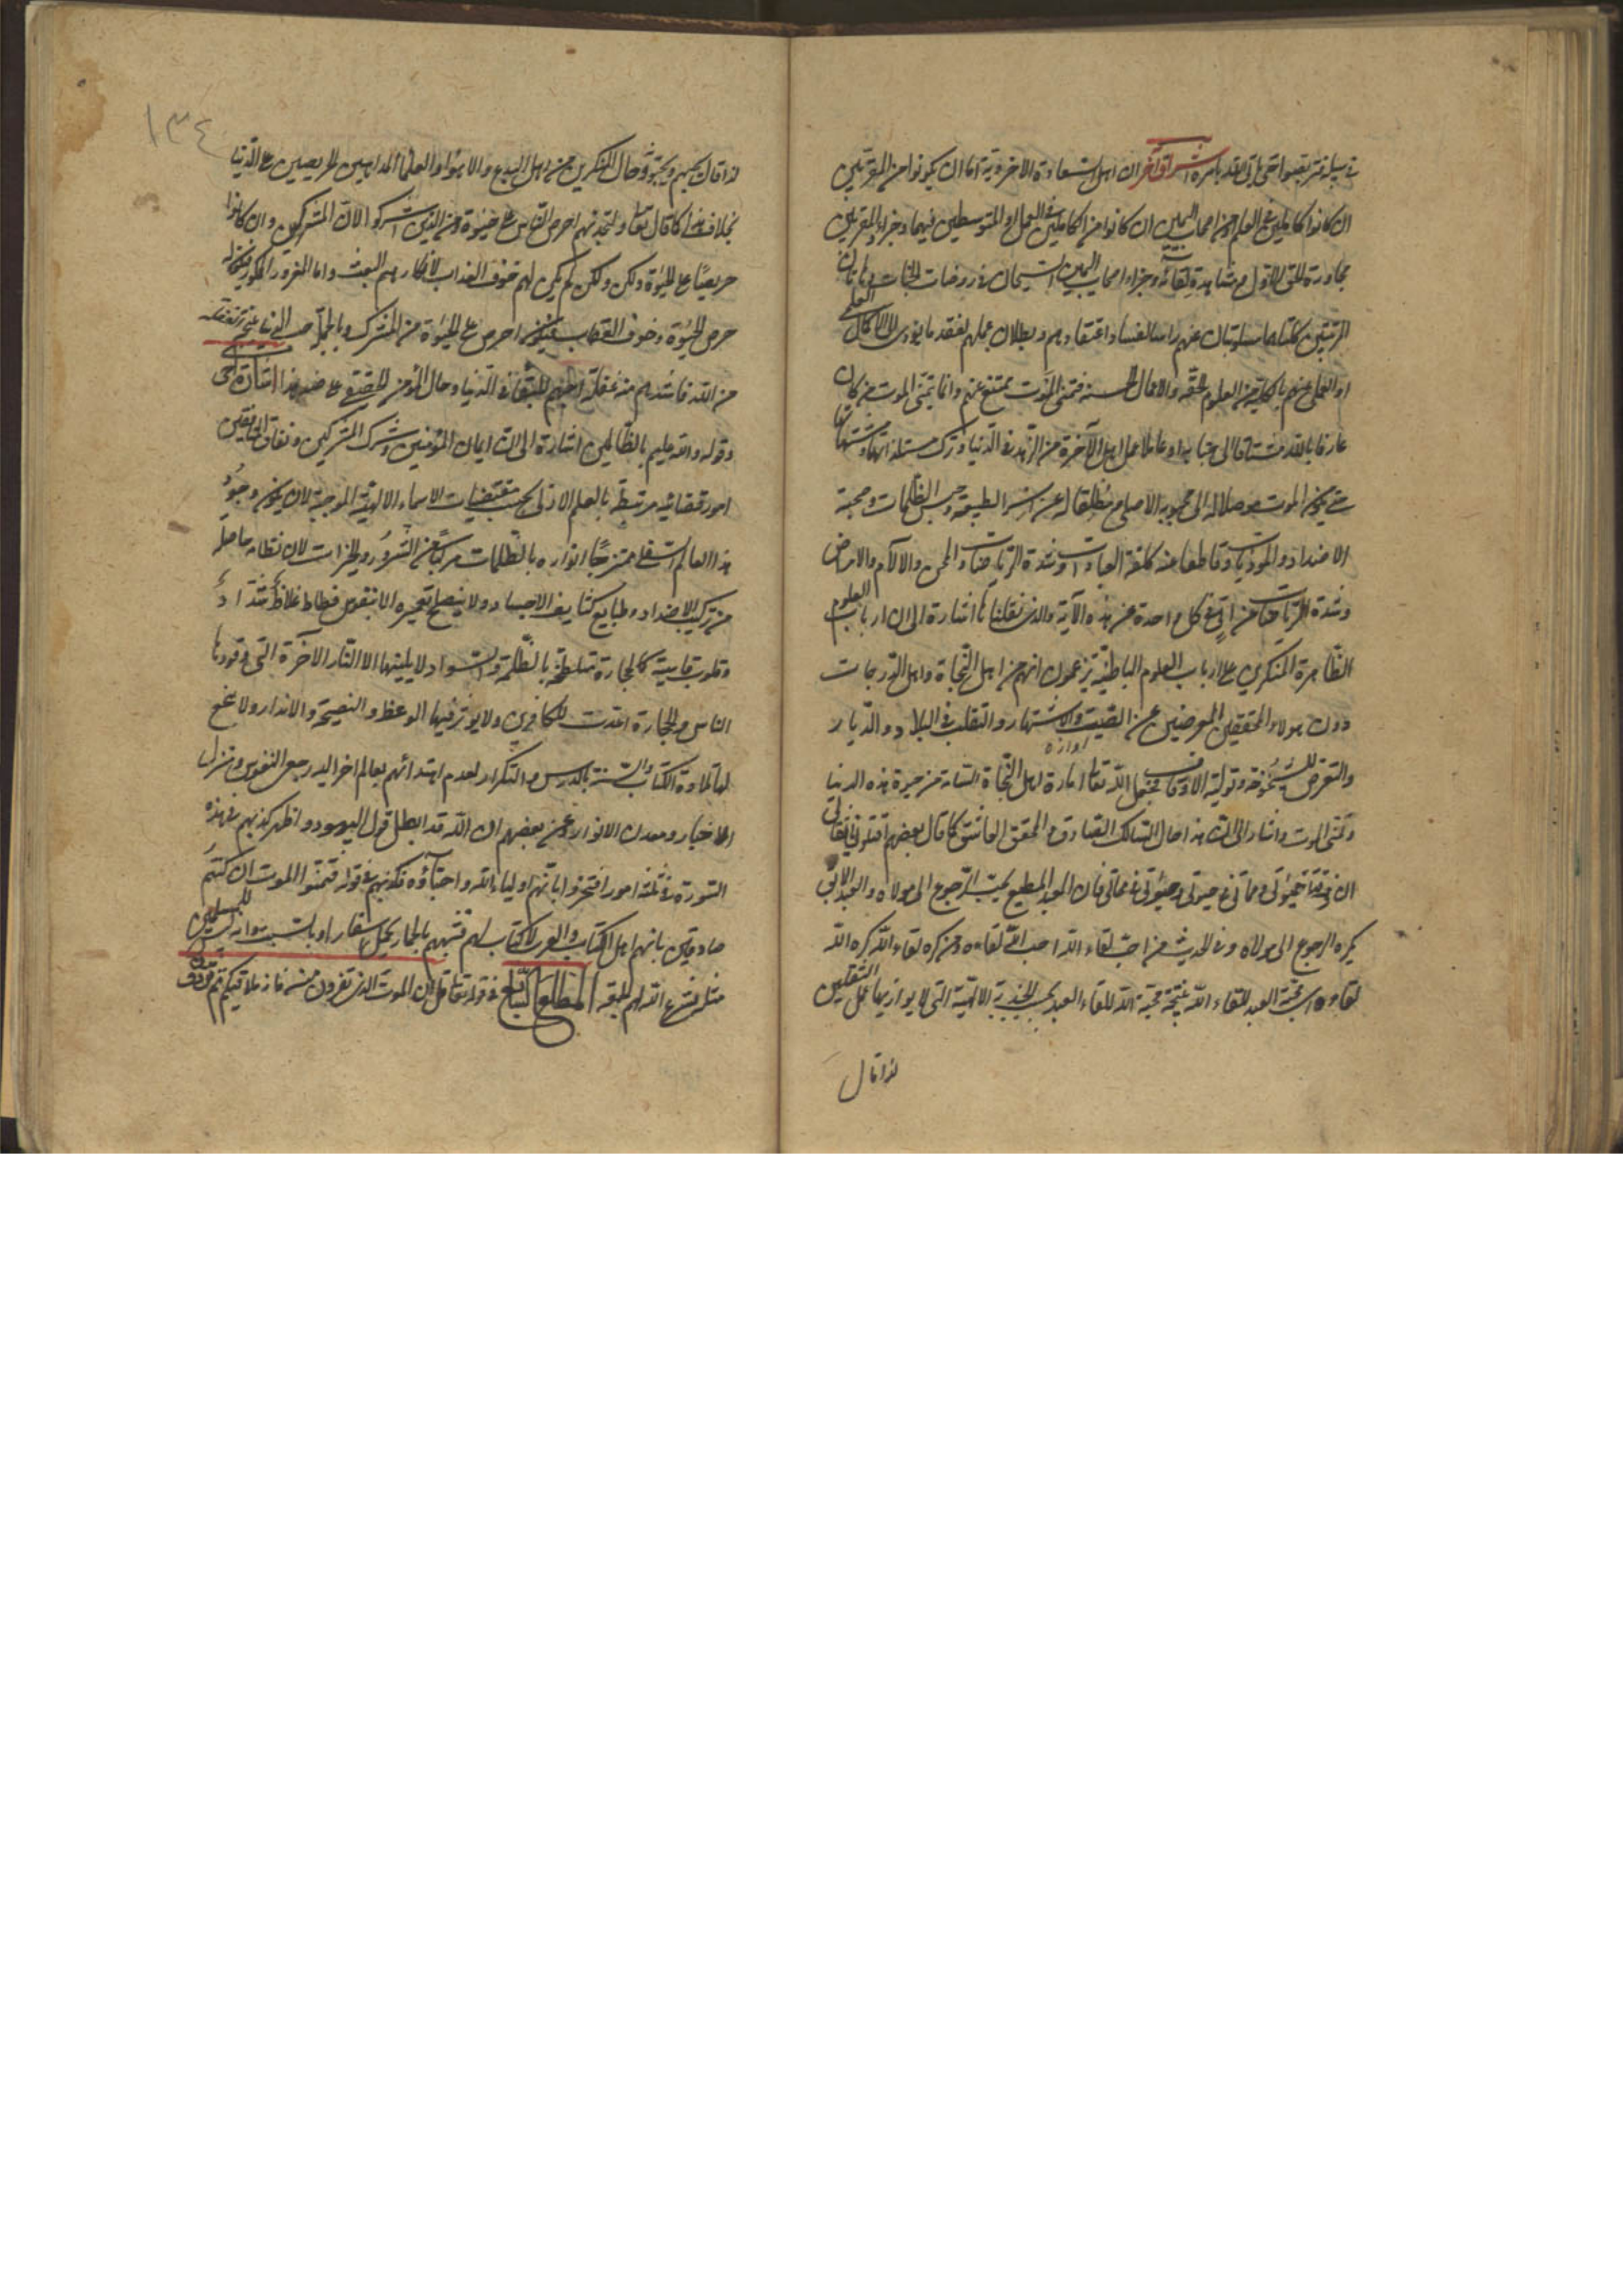 في سبيله فتربصوا حتى يأتي الله بأمره اشراق آخر ان اهل السعادة الاخروية اما ان يكونوا من المقربين
ان كانوا كاملين في العلم او من اصحاب اليمين ان كانوا من الكاملين في العمل او المتوسطين فيهما وجزاء المقربين
مجاورة الحق الاول ومشاهدة لقائه وجزاء اصحاب اليمين في روضات الجنات وهاتان
المرتبتين كلتاهما مسلوبتان عنهم راسا لفساد اعتقادهم وبطلان عملهم لفقد ما يؤدى الى الكمال العلمي
او العملي عنهم بالكلية من العلوم الحقة والاعمال الحسنة فتمنى الموت ممتنع عنهم وانما يتمنى الموت من كان
عارفا بالله مشتاقا الى جنابه او عاملا عمل اهل الآخرة من الزهد في الدنيا وترك مستلذاتها ومشتهاتها
حتى يكون الموت موصلا له الى محبوبه الاصلي ومطلقا له عن اسر الطبيعة وحبس الظلمات وصحبة
الاضداد والموذيات وقاطعا عنه كلفة العبادات وشدة الرياضات والمحن والآلام والامراض
وشدة الرياضات من اتى في كل واحدة من هذه الآية والذى نقلناها اشارة الى ان ارباب العلوم
الظاهرة المنكرين على ارباب العلوم الباطنية يزعمون انهم من اهل النجاة واهل الدرجات
دون هولاء المحققين المعرضين عن الصيت والاشتهار والتقلب في البلاد والديار
اوازه
والتعرض للشيخوخة وتولية الاوقاف فجعل الله تعالى امارة اهل النجاة السآمة من حيوة هذه الدنيا
وتمنى الموت واشار الى ان هذا حال السالك الصادق والمحقق العاشق كما قال بعضهم اقتلوني يا ثقاتى
ان في قتلى حيوتى ومماتى في حيوتى وحيوتى في مماتى فان العبد المطيع يحب الرجوع الى مولاه والعبد الابق
يكره الرجوع الى مولاه وفي الحديث من احب لقاء الله احب الله لقاءه ومن كره لقاء الله كره الله
لقاءه محبة العبد للقاء الله نتيجة محبة الله للقاء العبد بحسب الجذبة الالهية التى لا يوازيها عمل الثقلين
لذا قال
١٣٤
لذا قال يحبهم ويحبونه وحال المنكرين من اهل البدع والاهواء والعلماء المداهنين الحريصين على الدنيا
بخلاف هذا كما قال تعالى ولتجدنهم احرص الناس على حيوة ومن الذين اشركوا الا ان المشركين وان كانوا
حريصا على الحيوة ولكن لم يكن لهم خوف العذاب لانكارهم البعث واما المغرور الممكور
حرص الحيوة وخوف العقاب فيكون احرص على الحيوة من المشرك وبالجملة حب الدنيا
من الله فاشدهم منه غفلة احبهم للبقاء في الدنيا وحال المؤمن الحقيقى على ضد هذا اشارة اخرى
وقوله والله عليم بالظالمين اشارة الى ان ايمان المؤمنين وشرك المشركين ونفاق المنافقين
امور قضائية مرتبطة بالعلم الازلى بحسب مقتضيات الاسماء الالهية الموجبة لان يكون وجود
هذا العالم السفلى ممتزجا انواره بالظلمات مركبا من الشرور والخيرات لان نظامه حاصل
من تركيب الاضداد وطبايع كثايف الاجساد ولا ينصلح تعميره الا بنفوس فظاظ غلاظ شداد
وقلوب قاسية كالحجارة متلطخة بالظلمة والسواد لا يلينها الا النار الآخرة التى وقودها
الناس والحجارة اعدت للكافرين ولا يؤثر فيها الوعظ والنصيحة والانذار ولا ينجع
لها تلاوة الكتاب والسنة بالدرس والتكرار لعدم اهتدائهم بعالم آخر اليه رجع النفوس ومنزل
الاخيار ومعدن الانوار وعن بعضهم ان الله قد ابطل قول اليهود واظهر كذبهم في هذه
السورة في ثلثة امور افتخروا بانهم اولياء الله واحباؤه فكذبهم في قوله فتمنوا الموت ان كنتم
صادقين بانهم اهل الكتاب والعرب لا كتاب لهم فشبههم بالحمار يحمل اسفارا وبالسبت وانه ليس للمسلمين
مثله فشرع الله لهم الجمعة المطلع التاسع في قوله تعالى قل ان الموت الذى تفرون منه فانه ملاقيكم ثم تردون